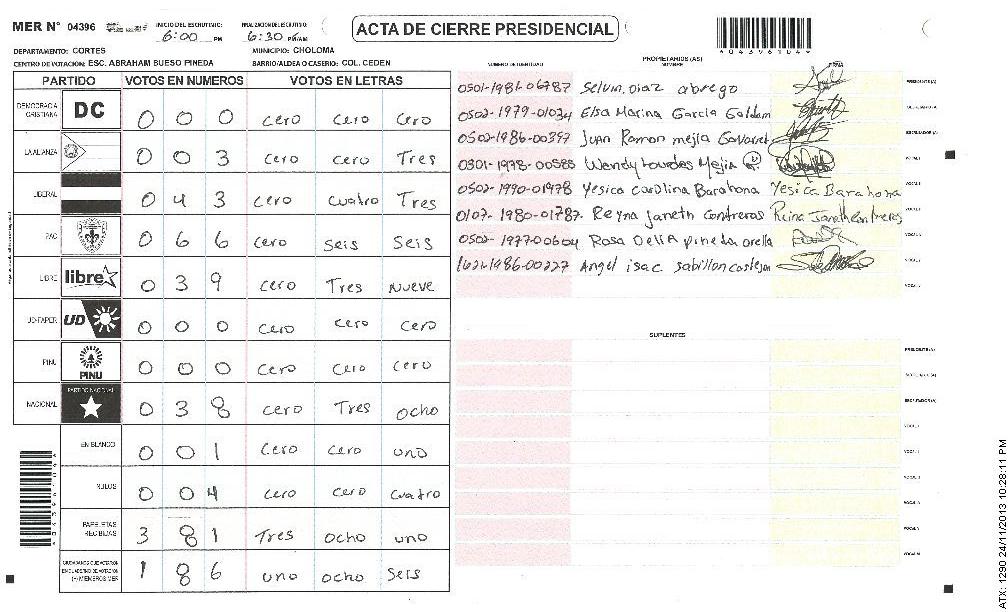 MER N° 04396
INICIO DEL ESCRUTINIO:
6:00 PM
FINALIZACION ESCRUTINIO:
6:30 PM/AM
ACTA DE CIERRE PRESIDENCIAL
DEPARTAMENTO: CORTES
MUNICIPIO: CHOLOMA
CENTRO DE VOTACIÓN: ESC. ABRAHAM BUESO PINEDA
BARRIO/ALDEA O CASERIO: COL. CEDEN
PARTIDO VOTOS EN NUMEROS VOTOS EN LETRAS
DEMOCRACIA CRISTIANA DC 0 0 0 cero cero cero
LA ALIANZA 0 0 3 cero cero Tres
LIBERAL 0 4 3 cero cuatro Tres
PAC 0 6 6 cero seis seis
LIBRE libre 0 3 9 cero Tres nueve
UD-FAPER UD 0 0 0 cero cero cero
PINU PINU 0 0 0 cero cero cero
NACIONAL PARTIDO NACIONAL 0 3 8 cero Tres ocho
EN BLANCO 0 0 1 cero cero uno
NULOS 0 0 4 cero cero cuatro
PAPELETAS RECIBIDAS 3 8 1 Tres ocho uno
CIUDADANOS QUE VOTARON EN CUADERNO DE VOTACION (+) MIEMBROS MER 1 8 6 uno ocho seis
PROPIETARIOS (AS)
NUMERO DE IDENTIDAD NOMBRE FIRMA
0501-1981-06787 Selvin Diaz abrego PRESIDENTE(A)
0502-1979-01034 Elsa Marina Garcia Galdam SECRETARIO(A)
0502-1986-00357 Juan Ramon mejia ESCRUTADOR(A)
0301-1978-00585 Wendy Lourdes Mejia VOCAL I
0502-1990-01978 Yesica Carolina Barahona Yesica Barahona VOCAL II
0107-1980-01787 Reyna Janeth Contreras Reina Janeth Contreres
0502-1977-00604 Rosa Delia pineda orella
1621-1986-00227 Angel isac sabillon castejon
SUPLENTES
PRESIDENTE(A)
SECRETARIO(A)
ESCRUTADOR(A)
VOCAL I
*04396104*
ATX: 1290 24/11/2013 10:28:11 PM